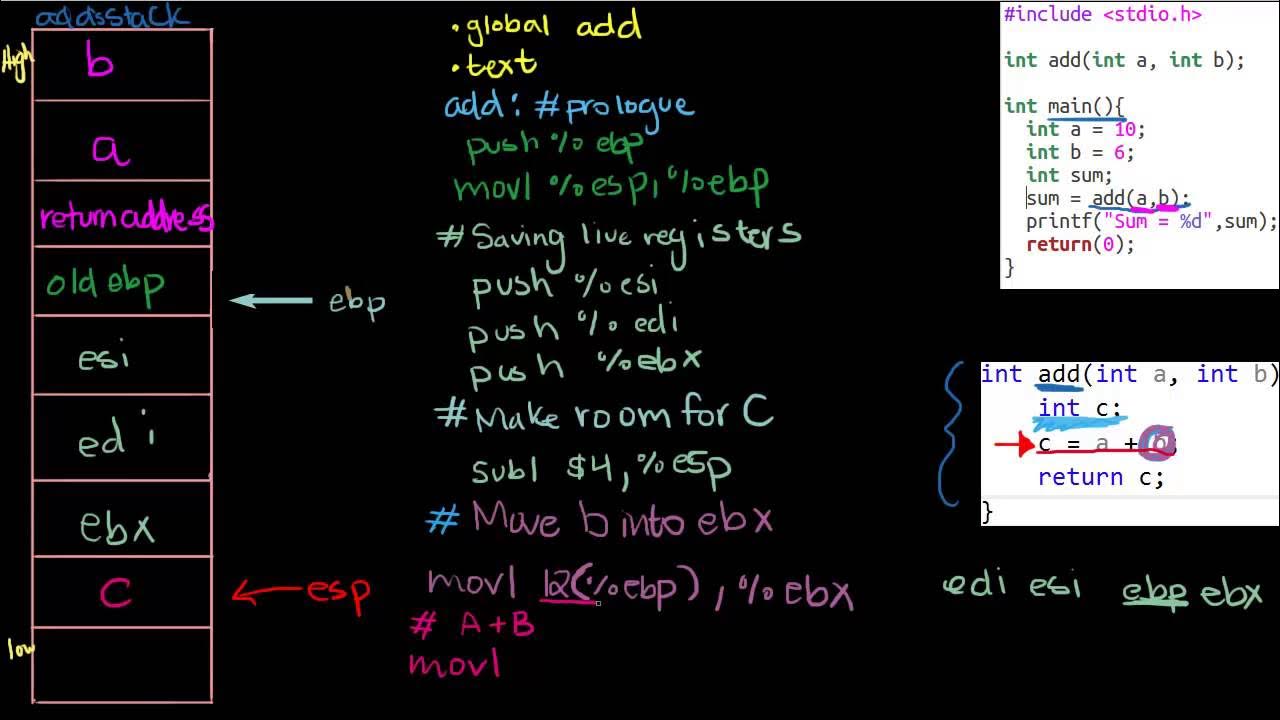 adds stack
High
b
a
return address
old ebp
esi
edi
ebx
c
low
ebp
esp
.global add
.text
add: #prologue
push %ebp
movl %esp, %ebp
# Saving live registers
push %esi
push %edi
push %ebx
# Make room for C
subl $4, %esp
# Move b into ebx
movl 12(%ebp), %ebx
# A+B
movl
#include <stdio.h>
int add(int a, int b);
int main(){
int a = 10;
int b = 6;
int sum;
sum = add(a,b);
printf("Sum = %d",sum);
return(0);
}
int add(int a, int b)
int c;
c = a + b;
return c;
}
edi esi ebp ebx